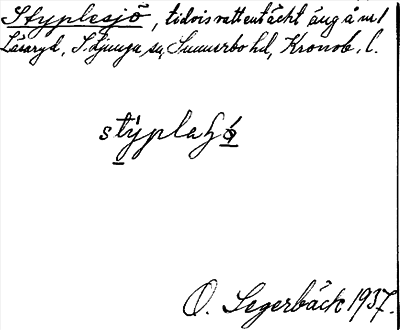 Styplesjö, tidvis vattentäckt äng å nr 1
Låsaryd, S. Ljunga sn, Sunnerbo hd, Kronob. l.
stýplaɧö̀
O. Segerbäck 1937.